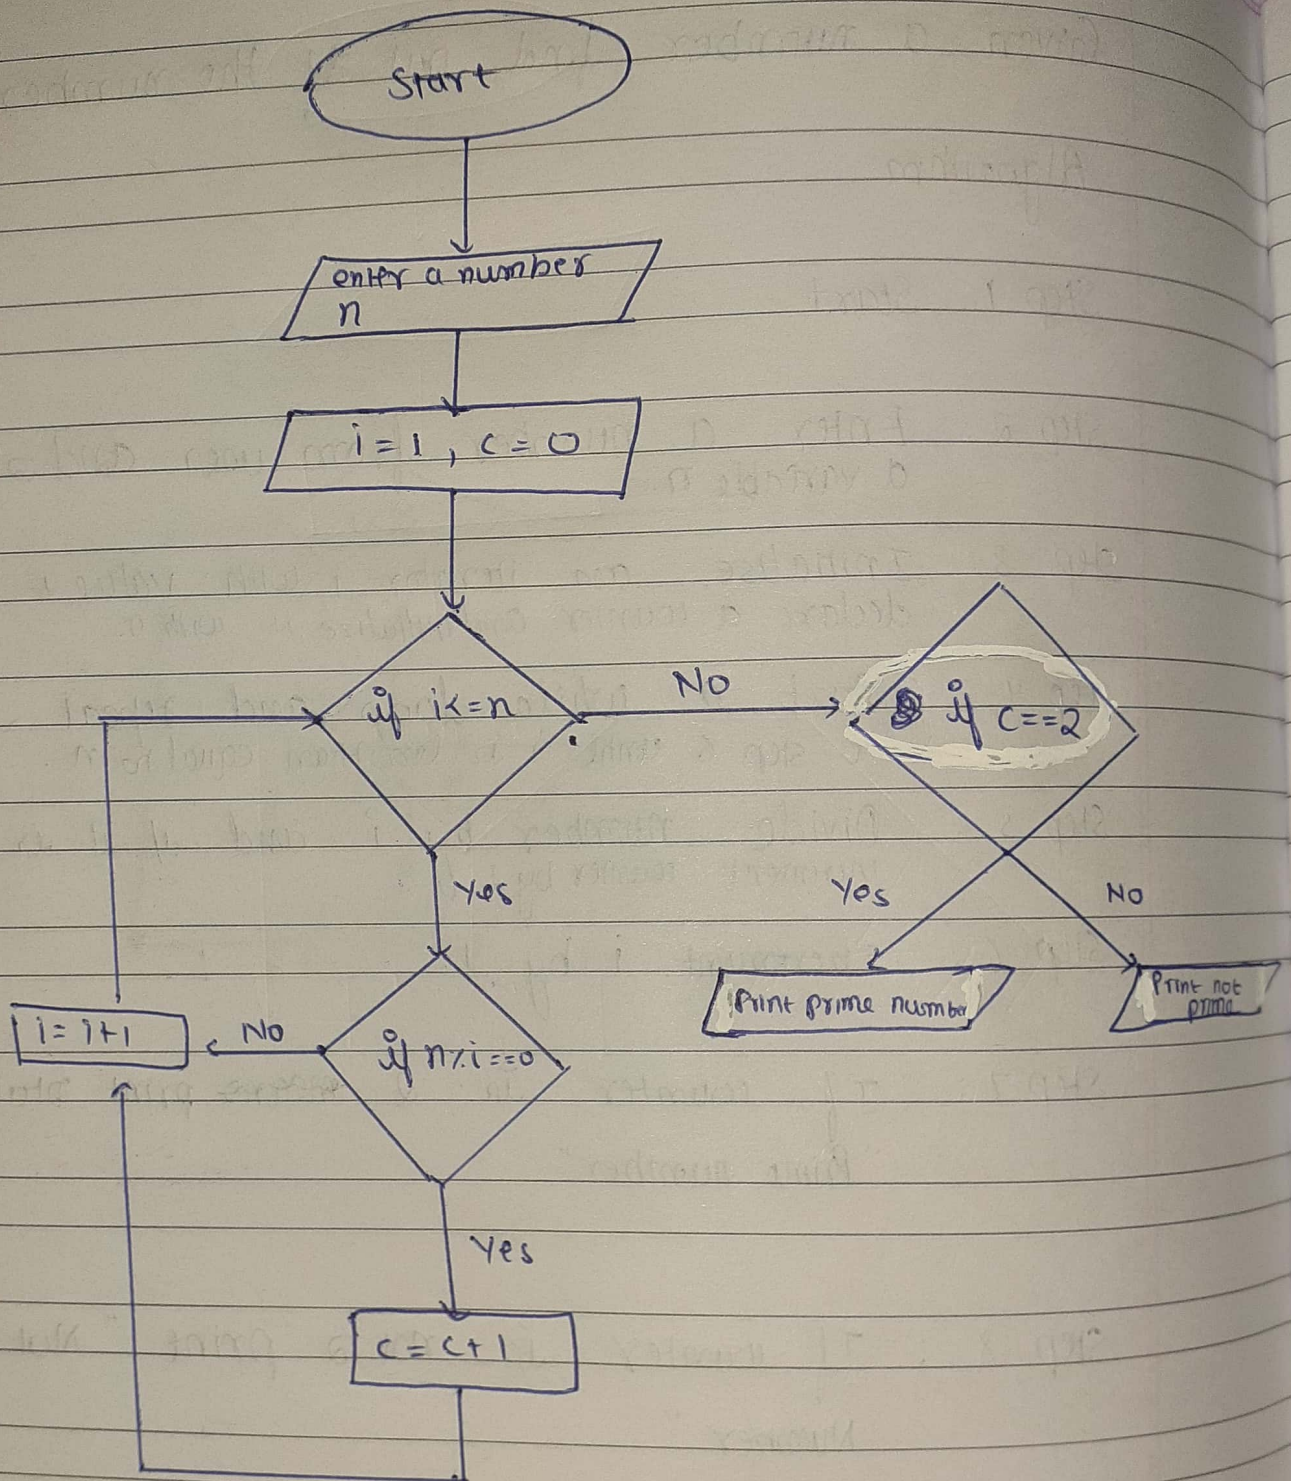 Start
enter a number
n
i = 1 , c = 0
if i<=n
No
if c==2
Yes
Yes
No
Print prime number
Print not
prime
i = i+1
No
if n%i==0
Yes
c = c+1